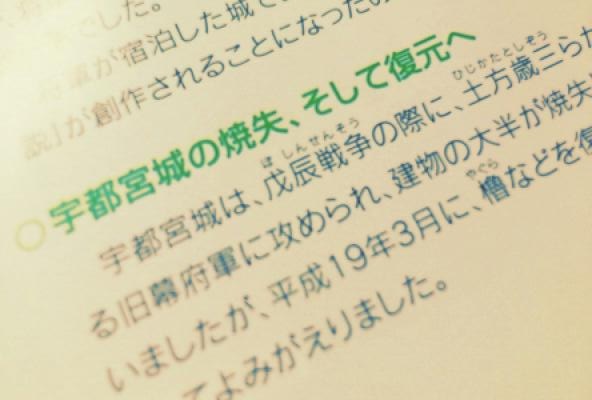 でした。
軍が宿泊した城で
説」が創作されることになったの
○宇都宮城の焼失、そして復元へ
宇都宮城は、戊辰戦争の際に、土方歳三らが
る旧幕府軍に攻められ、建物の大半が焼失
いましたが、平成19年3月に、櫓などを復
てよみがえりました。